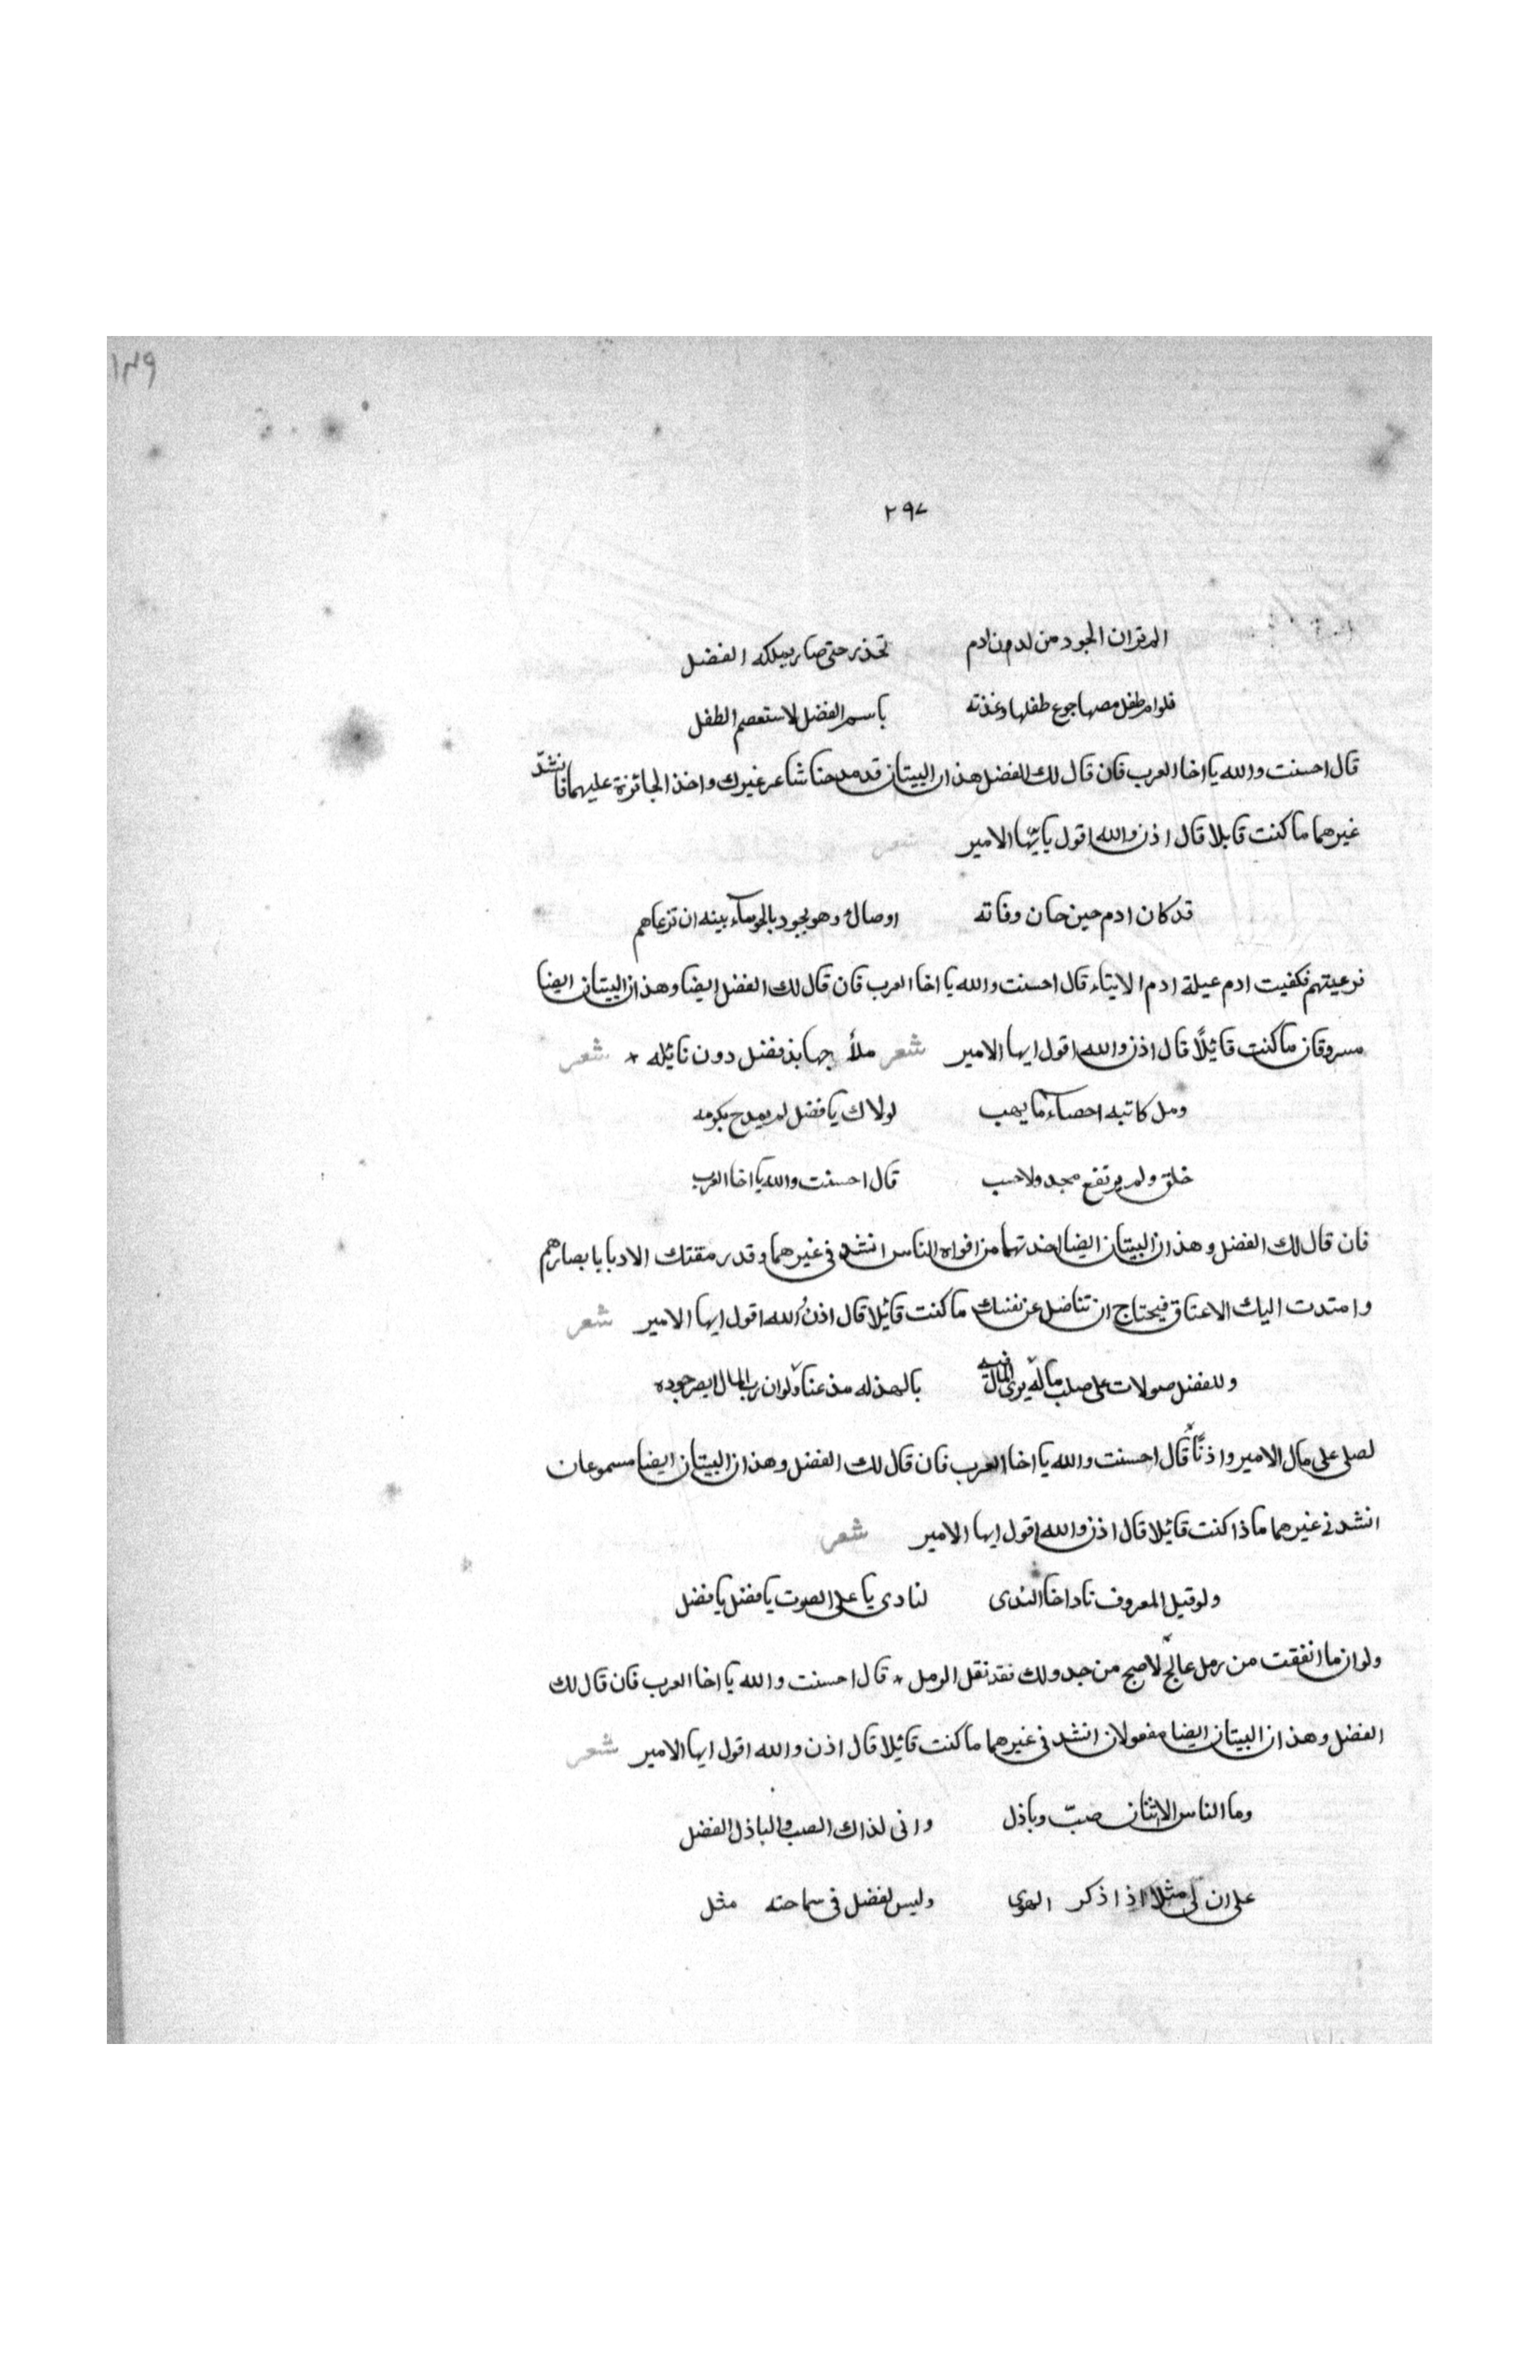 ١٣٩
٢٩٧
الم تران الجود من لدن ادم تحذر حتى صار يملكه الفضل
فلو ام طفل مصها جوع طفلها وغذته باسم الفضل لاستعصم الطفل
قال احسنت والله يا اخا العرب فان قال لك الفضل هذان البيتان قد مدحنا شاعر غيرك واخذ الجائزة عليهما فانشد
غيرهما ما كنت قايلا قال اذن والله اقول يا يّها الامير شعر
قد كان ادم حين حان وفاته اوصاك وهو يجود بالحوباء ببنيه ان ترعاهم
فرعيتهم فكفيت ادم عيلة ادم الابتاء قال احسنت والله يا اخا العرب فان قال لك الفضل ايضا وهذان البيتان ايضا
مسروقان ما كنت قائلًا قال اذن والله اقول ايها الامير شعر ملأ جهابذ فضل دون نائله * شعر
ومل كاتبه احصاء ما يهب لولاك يا فضل لم يمدح بكرمه
خلق ولم يرتفع مجد ولا حسب قال احسنت والله يا اخا العرب
فان قال لك الفضل وهذان البيتان ايضا اخذتهما من افواه الناس انشد في غيرهما وقد رمقتك الادبا بابصارهم
وامتدت اليك الاعناق فيحتاج ان تناضل عن نفسك ما كنت قائلا قال اذن والله اقول ايها الامير شعر
وللفضل صولات على صلب ماله يرى المال فيه بالهذله مذعنا ولو ان رب المال ابصر جوده
لصلى على مال الامير واذنا قال احسنت والله يا اخا العرب فان قال لك الفضل وهذان البيتان ايضا مسموعان
انشد في غيرهما ماذا كنت قائلا قال اذن والله اقول ايها الامير شعر
ولو قيل للمعروف ناد اخا الندى لنادى يا على الصوت يا فضل يا فضل
ولو ان ما انفقت من رمل عالج لاصبح من جدولك نقد نقل الرمل * قال احسنت والله يا اخا العرب فان قال لك
الفضل وهذان البيتان ايضا مفعولان انشد في غيرهما ما كنت قائلا قال اذن والله اقول ايها الامير شعر
وما الناس الا اثنان صبّ وباذل وانى لذاك الصب والباذل الفضل
على ان لى مثلا اذا ذكر الهوى وليس لفضل فى سماحته مثل